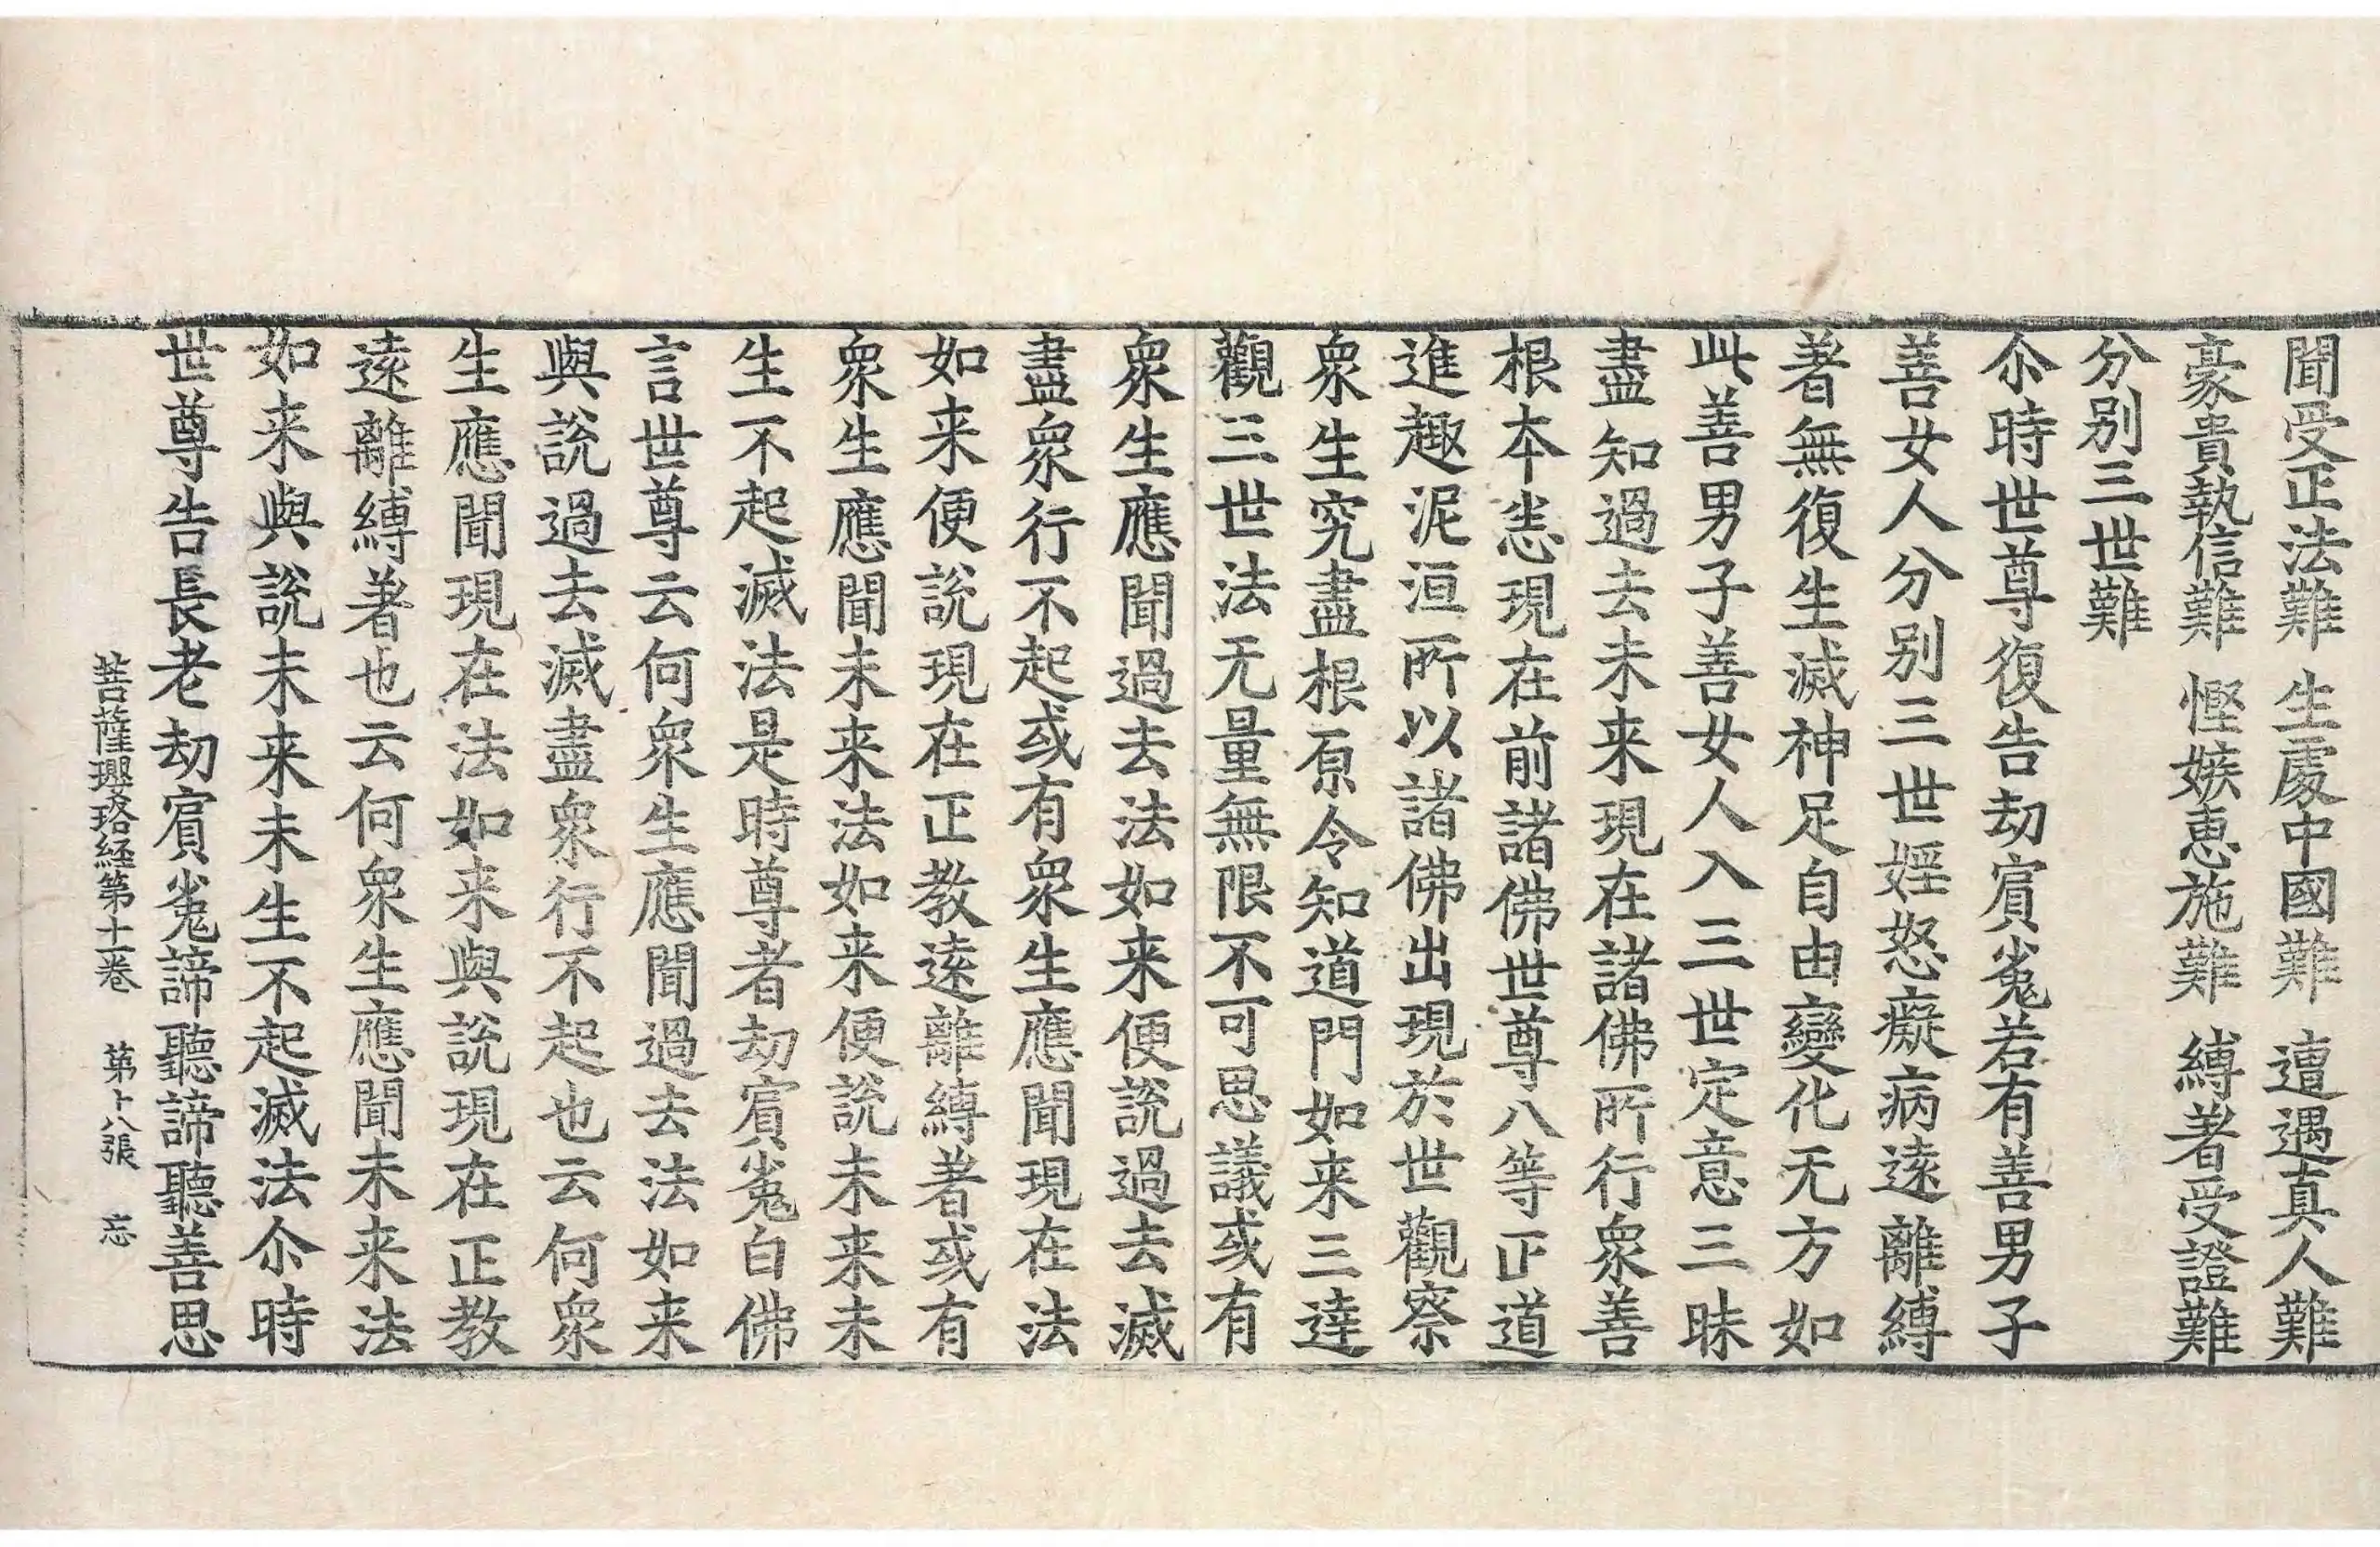 聞受正法難　生處中國難　遭遇真人難
豪貴執信難　慳嫉惠施難　縛著受證難
分別三世難
尒時世尊復告劫賔㝹若有善男子
善女人分別三世婬怒癡病逺離縛
著無復生滅神足自由變化无方如
此善男子善女人入三世定意三昧
盡知過去未来現在諸佛所行衆善
根本恙現在前諸佛世尊八等正道
進趣泥洹所以諸佛出現於世觀察
衆生究盡根原令知道門如来三達
觀三世法无量無限不可思議或有
衆生應聞過去法如来便說過去滅
盡衆行不起或有衆生應聞現在法
如来便說現在正教逺離縛著或有
衆生應聞未来法如来便說未来未
生不起滅法是時尊者劫賔㝹白佛
言世尊云何衆生應聞過去法如来
與說過去滅盡衆行不起也云何衆
生應聞現在法如来與說現在正教
逺離縛著也云何衆生應聞未来法
如来與說未来未生不起滅法尒時
世尊告長老劫賔㝹諦聽諦聽善思
菩薩瓔珞経第十一卷　第十八張　忘